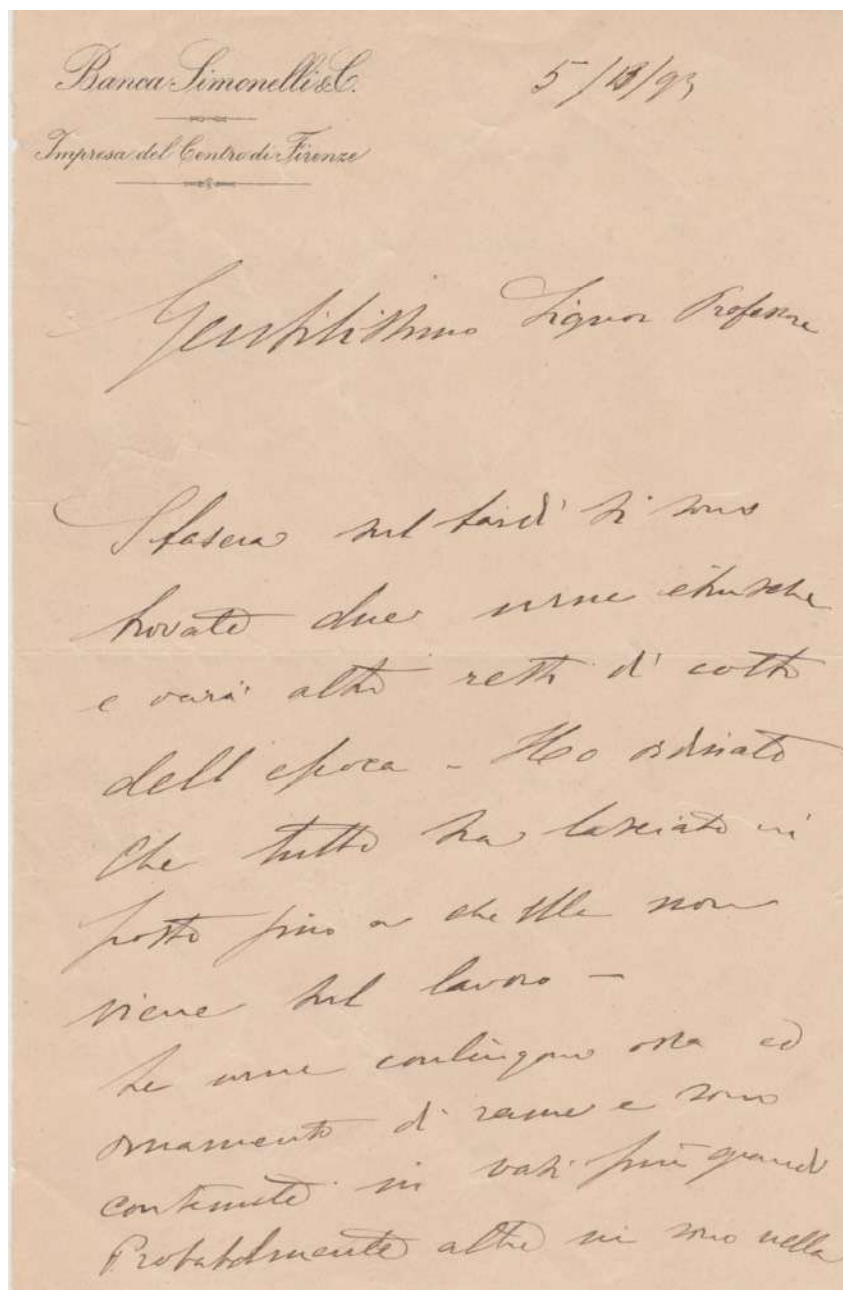 Banca Simonelli & C.
5/ /93
Impresa del Centro di Firenze
Gentilissimo Signor Professore
Stasera sul tardi si sono
trovate due urne etrusche
e varii altri resti di cotto
dell'epoca - Ho ordinato
che tutto sia lasciato in
posto fino a che Ella non
viene sul lavoro -
Le urne contengono ossa ed
ornamenti di rame e sono
contenute in vasi più grandi
Probabilmente altre vi sono nella